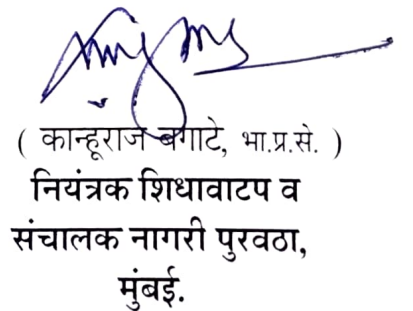 ( कान्हूराज बगाटे, भा.प्र.से. )
नियंत्रक शिधावाटप व
संचालक नागरी पुरवठा,
मुंबई.